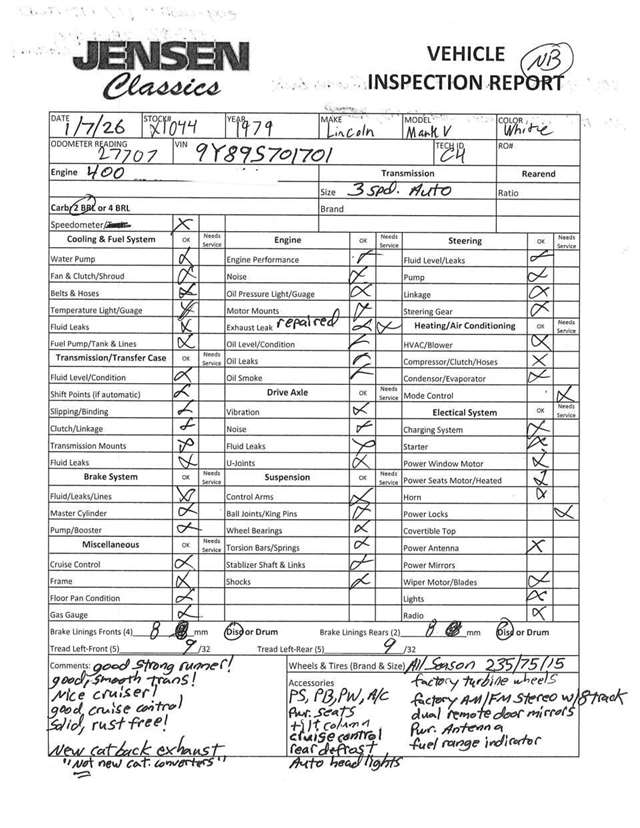 JENSEN
Classics
VEHICLE
INSPECTION REPORT
NB
DATE 1/7/26 STOCK# X1044 YEAR 1979 MAKE Lincoln MODEL Mark V COLOR White
ODOMETER READING 27707 VIN 9Y89S701701 TECH ID C4 RO#
Engine 400 Transmission Rearend
Size 3 spd. Auto Ratio
Carb: 2 BRL or 4 BRL Brand
Speedometer/
Cooling & Fuel System OK Needs Service Engine OK Needs Service Steering OK Needs Service
Water Pump Engine Performance Fluid Level/Leaks
Fan & Clutch/Shroud Noise Pump
Belts & Hoses Oil Pressure Light/Guage Linkage
Temperature Light/Guage Motor Mounts Steering Gear
Fluid Leaks Exhaust Leak repaired Heating/Air Conditioning OK Needs Service
Fuel Pump/Tank & Lines Oil Level/Condition HVAC/Blower
Transmission/Transfer Case OK Needs Service Oil Leaks Compressor/Clutch/Hoses
Fluid Level/Condition Oil Smoke Condensor/Evaporator
Shift Points (if automatic) Drive Axle OK Needs Service Mode Control
Slipping/Binding Vibration Electical System OK Needs Service
Clutch/Linkage Noise Charging System
Transmission Mounts Fluid Leaks Starter
Fluid Leaks U-Joints Power Window Motor
Brake System OK Needs Service Suspension OK Needs Service Power Seats Motor/Heated
Fluid/Leaks/Lines Control Arms Horn
Master Cylinder Ball Joints/King Pins Power Locks
Pump/Booster Wheel Bearings Covertible Top
Miscellaneous OK Needs Service Torsion Bars/Springs Power Antenna
Cruise Control Stablizer Shaft & Links Power Mirrors
Frame Shocks Wiper Motor/Blades
Floor Pan Condition Lights
Gas Gauge Radio
Brake Linings Fronts (4) 8 mm Disc or Drum Brake Linings Rears (2) 8 mm Disc or Drum
Tread Left-Front (5) 9/32 Tread Left-Rear (5) 9/32
Comments: good strong runner!
good, smooth trans!
Nice cruiser!
good cruise control
Solid, rust free!
New catback exhaust
"Not new cat. converters"
Wheels & Tires (Brand & Size) All Season 235/75/15
Accessories factory turbine wheels
PS, PB, PW, A/C factory AM/FM Stereo w/8track
Pwr. seats dual remote door mirrors
tilt column Pwr. Antenna
cruise control fuel range indicator
rear defrost
Auto headlights